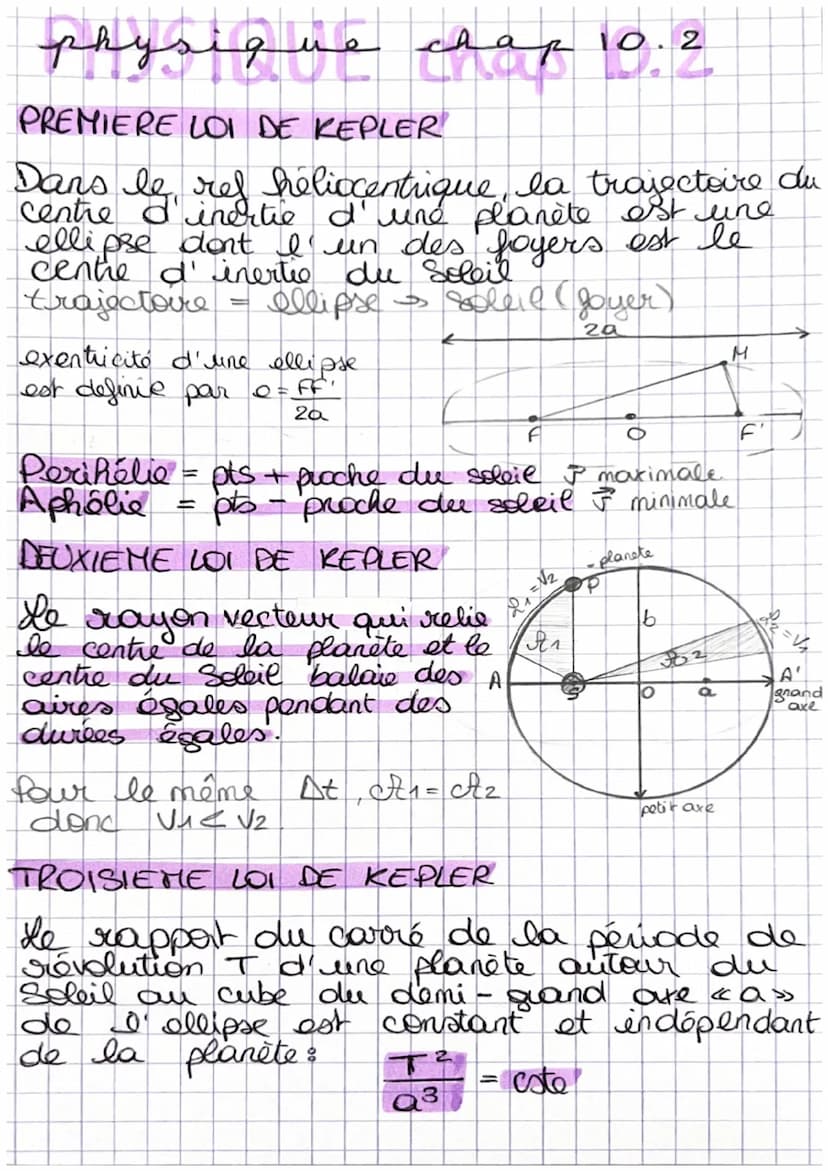 physique chap 10.2
PREMIERE LOI DE KEPLER
Dans le ref héliocentrique, la trajectoire du
centre d'inertie d'une planète est une
ellipse dont l'un des foyers est le
centre d'inertie du Soleil
trajectoire = ellipse → soleil (foyer)
2a
exentricité d'une ellipse
est definie par e = FF'
2a
M
F O F'
Perihélie = pts + proche du soleil maximale
Aphélie = pts - proche du soleil minimale
DEUXIEME LOI DE KEPLER
- planete
P
b
A1
A2
A S O a A'
grand
axe
petit axe
Le rayon vecteur qui relie
le centre de la planète et le
centre du Soleil balaie des
aires égales pendant des
durées égales.
Pour le même Δt, A1 = A2
donc V1 < V2
TROISIEME LOI DE KEPLER
Le rapport du carré de la période de
révolution T d'une planète autour du
Soleil au cube du demi-grand axe «a»
de l'ellipse est constant et indépendant
de la planète :
T²
a³ = cste